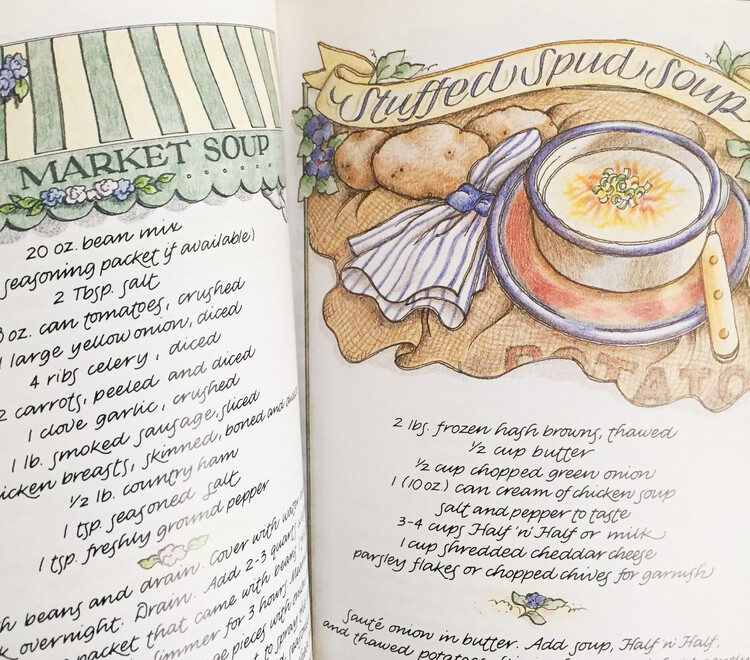 MARKET SOUP
20 oz. bean mix
seasoning packet if available)
2 Tbsp. salt
oz. can tomatoes, crushed
large yellow onion, diced
4 ribs celery, diced
2 carrots, peeled and diced
1 clove garlic, crushed
1 lb. smoked sausage, sliced
breasts, skinned, boned and
1/2 lb. country ham
1 tsp. seasoned salt
1 tsp. freshly ground pepper
beans and drain. Cover with
overnight. Drain. Add 2-3 quarts
packet that came with beans
simmer for 3 hours.
pieces with
to
Stuffed Spud Soup
POTATO
2 lbs. frozen hash browns, thawed
1/2 cup butter
1/2 cup chopped green onion
1 (10 oz.) can cream of chicken soup
salt and pepper to taste
3-4 cups Half 'n' Half or milk
1 cup shredded cheddar cheese
parsley flakes or chopped chives for garnish
Sauté onion in butter. Add soup, Half 'n' Half,
and thawed potatoes.